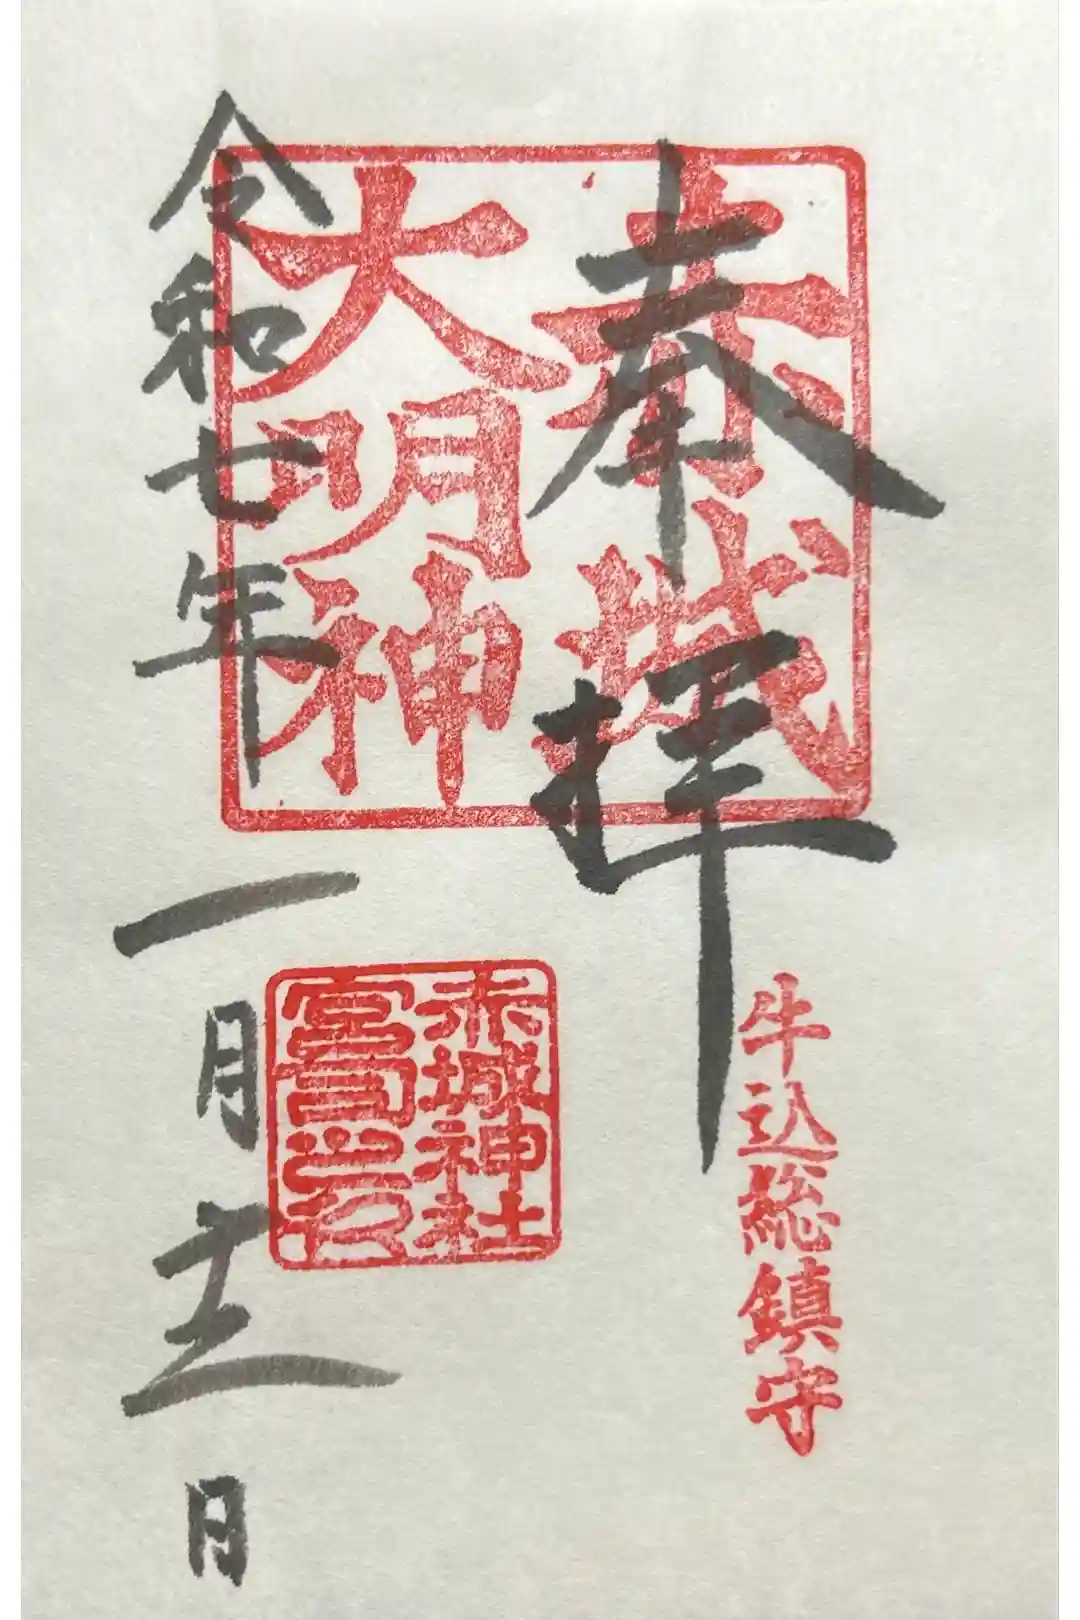 奉拝
赤城
大明神
牛込総鎮守
赤城神社
宮司之印
令和七年一月五日